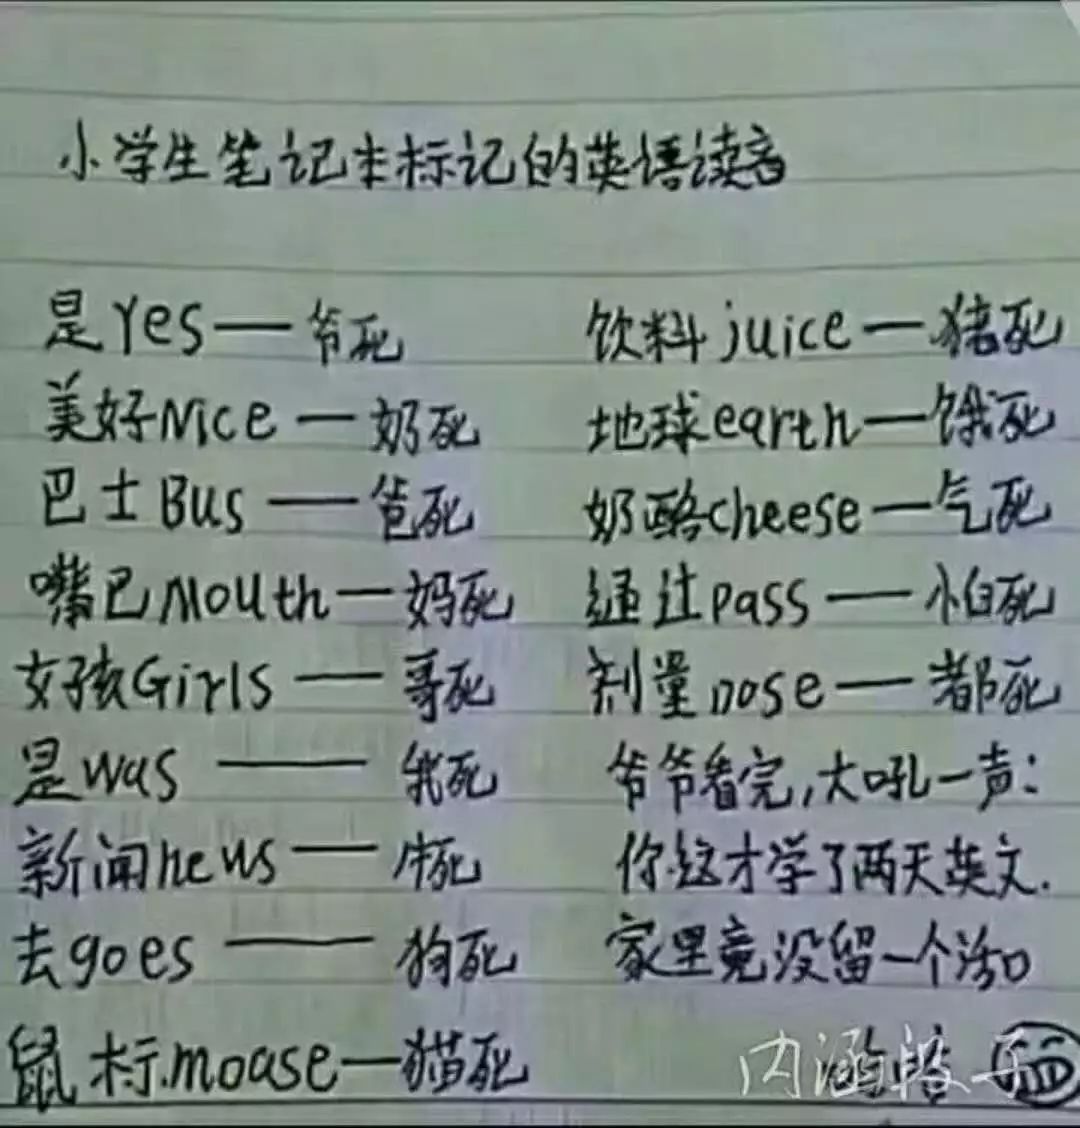 小学生笔记本标记的英语读音
是Yes——爷死
美好Nice—奶死
巴士Bus——爸死
嘴巴Mouth—妈死
女孩Girls——哥死
是was——我死
新闻news——牛死
去goes——狗死
鼠标mouse—猫死
饮料juice—猪死
地球earth—饿死
奶酪cheese—气死
通过pass——怕死
剂量nose——都死
爷爷看完,大吼一声:
你这才学了两天英文.
家里竟没留一个活口
内涵段子